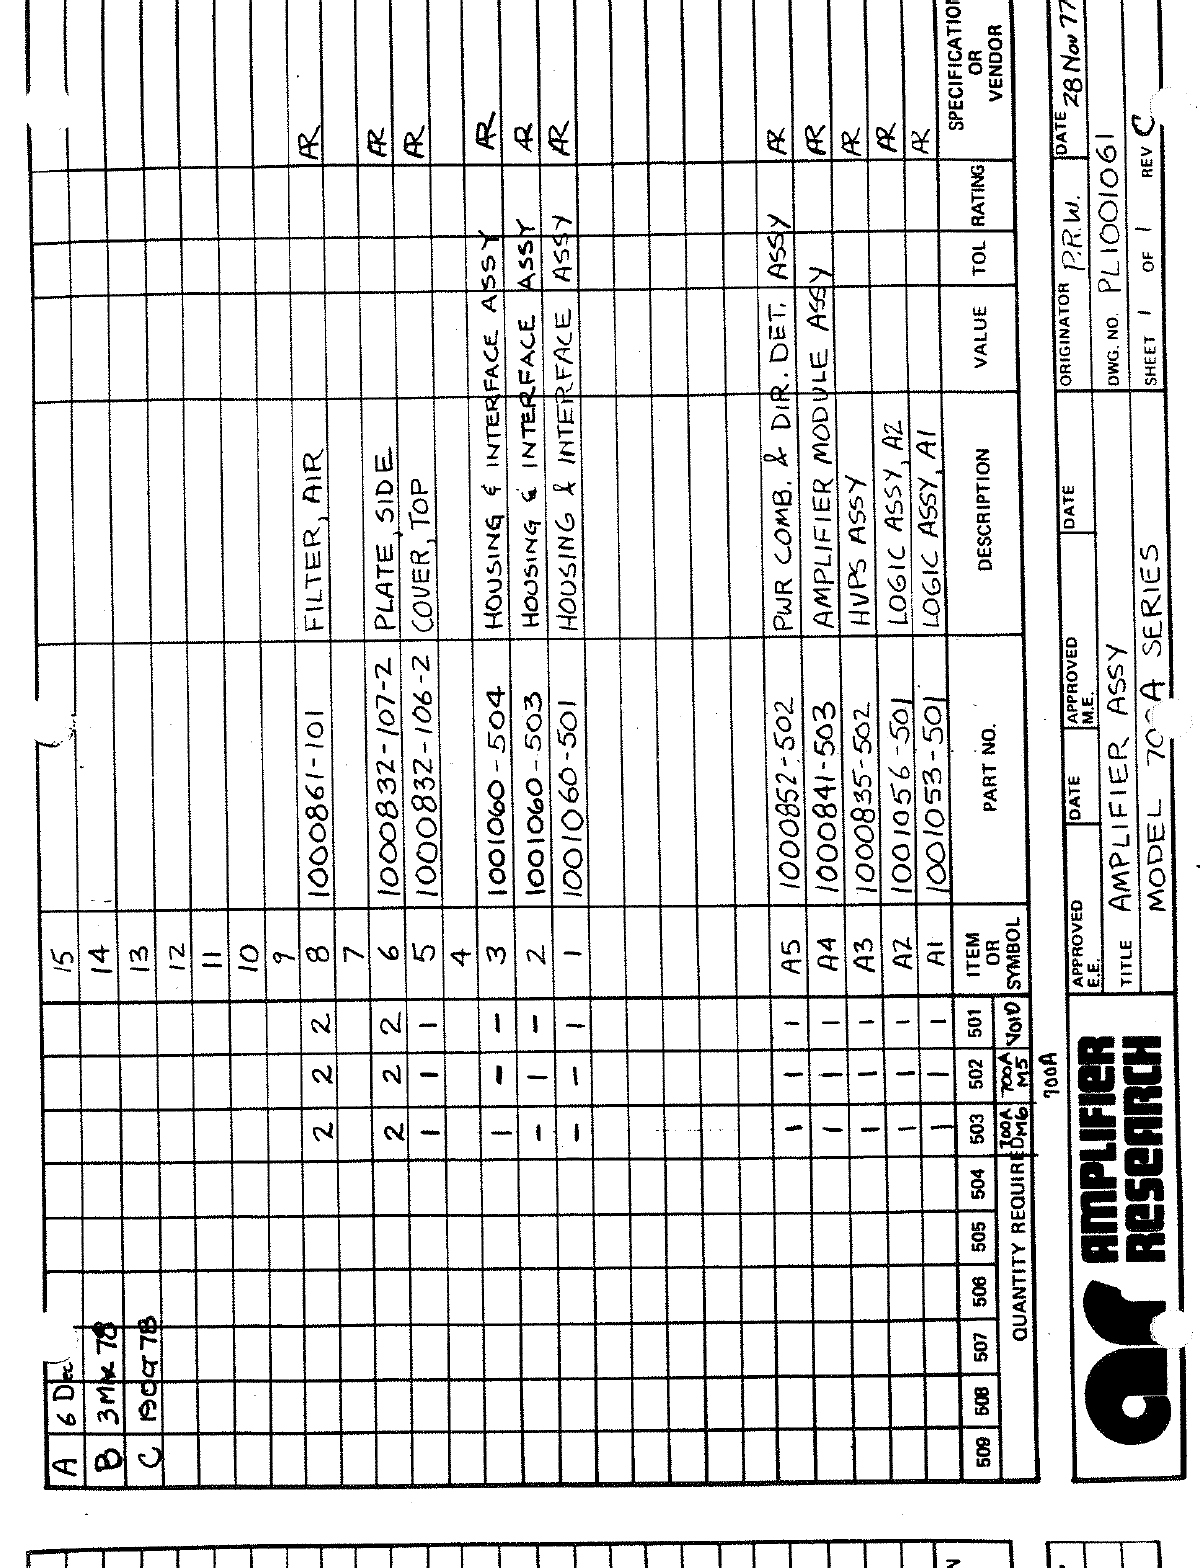 A 6 Dec 15
B 3 MAR 78 14
C 19 OCT 78 13
12
11
10
9
2 2 2 8 1000861-101 FILTER, AIR AR
7
2 2 2 6 1000832-107-2 PLATE, SIDE AR
1 1 1 5 1000832-106-2 COVER, TOP AR
4
1 - - 3 1001060-504 HOUSING & INTERFACE ASSY AR
- 1 - 2 1001060-503 HOUSING & INTERFACE ASSY AR
- - 1 1 1001060-501 HOUSING & INTERFACE ASSY AR
1 1 1 A5 1000852-502 PWR COMB. & DIR. DET. ASSY AR
1 1 1 A4 1000841-503 AMPLIFIER MODULE ASSY AR
1 1 1 A3 1000835-502 HVPS ASSY AR
1 1 1 A2 1001056-501 LOGIC ASSY, A2 AR
1 1 1 A1 1001053-501 LOGIC ASSY, A1 AR
509 508 507 506 505 504 503 502 501 ITEM OR SYMBOL PART NO. DESCRIPTION VALUE TOL RATING SPECIFICATIO OR VENDOR
QUANTITY REQUIRED 700A M6 700A M5 VOID
700A
AMPLIFIER RESEARCH
APPROVED E.E. DATE APPROVED M.E. DATE ORIGINATOR P.R.W. DATE 28 Nov 77
TITLE AMPLIFIER ASSY DWG. NO. PL1001061
MODEL 700A SERIES SHEET 1 OF 1 REV C